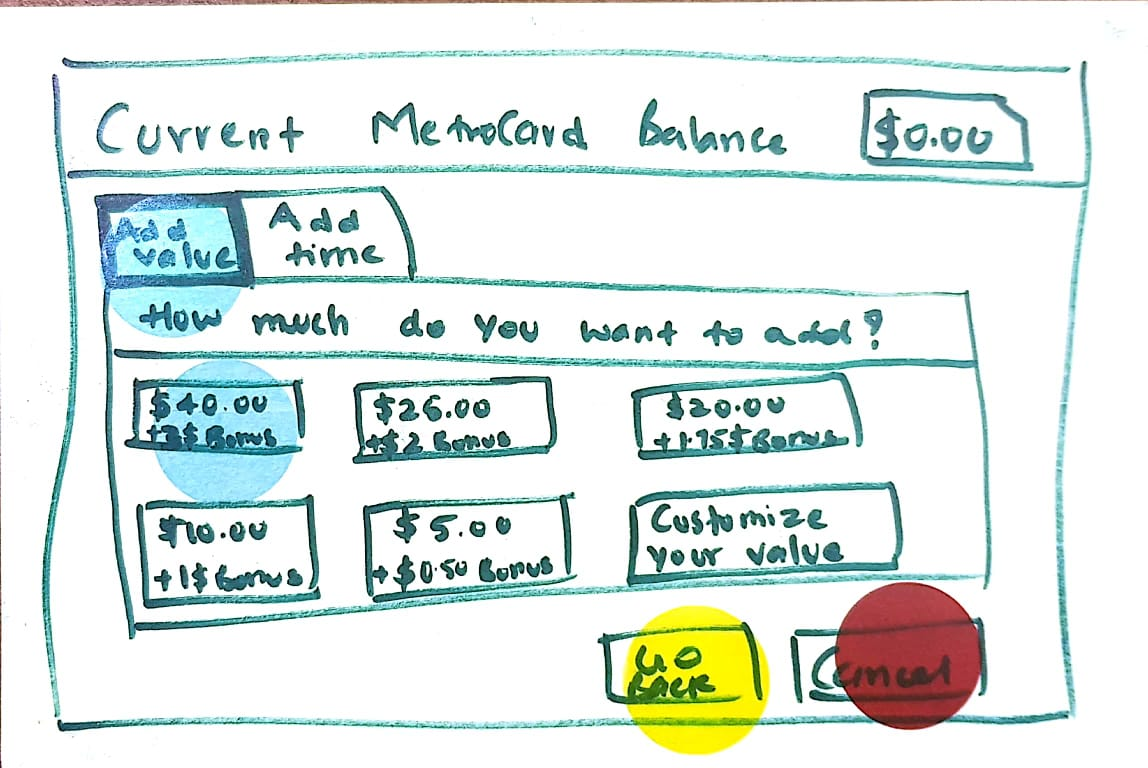 Current MetroCard Balance $0.00
Add value
Add time
How much do you want to add?
$40.00
+3$ Bonus
$26.00
+$2 Bonus
$20.00
+1.75$ Bonus
$10.00
+1$ Bonus
$5.00
+$0.50 Bonus
Customize
your value
Go
Back
Cancel